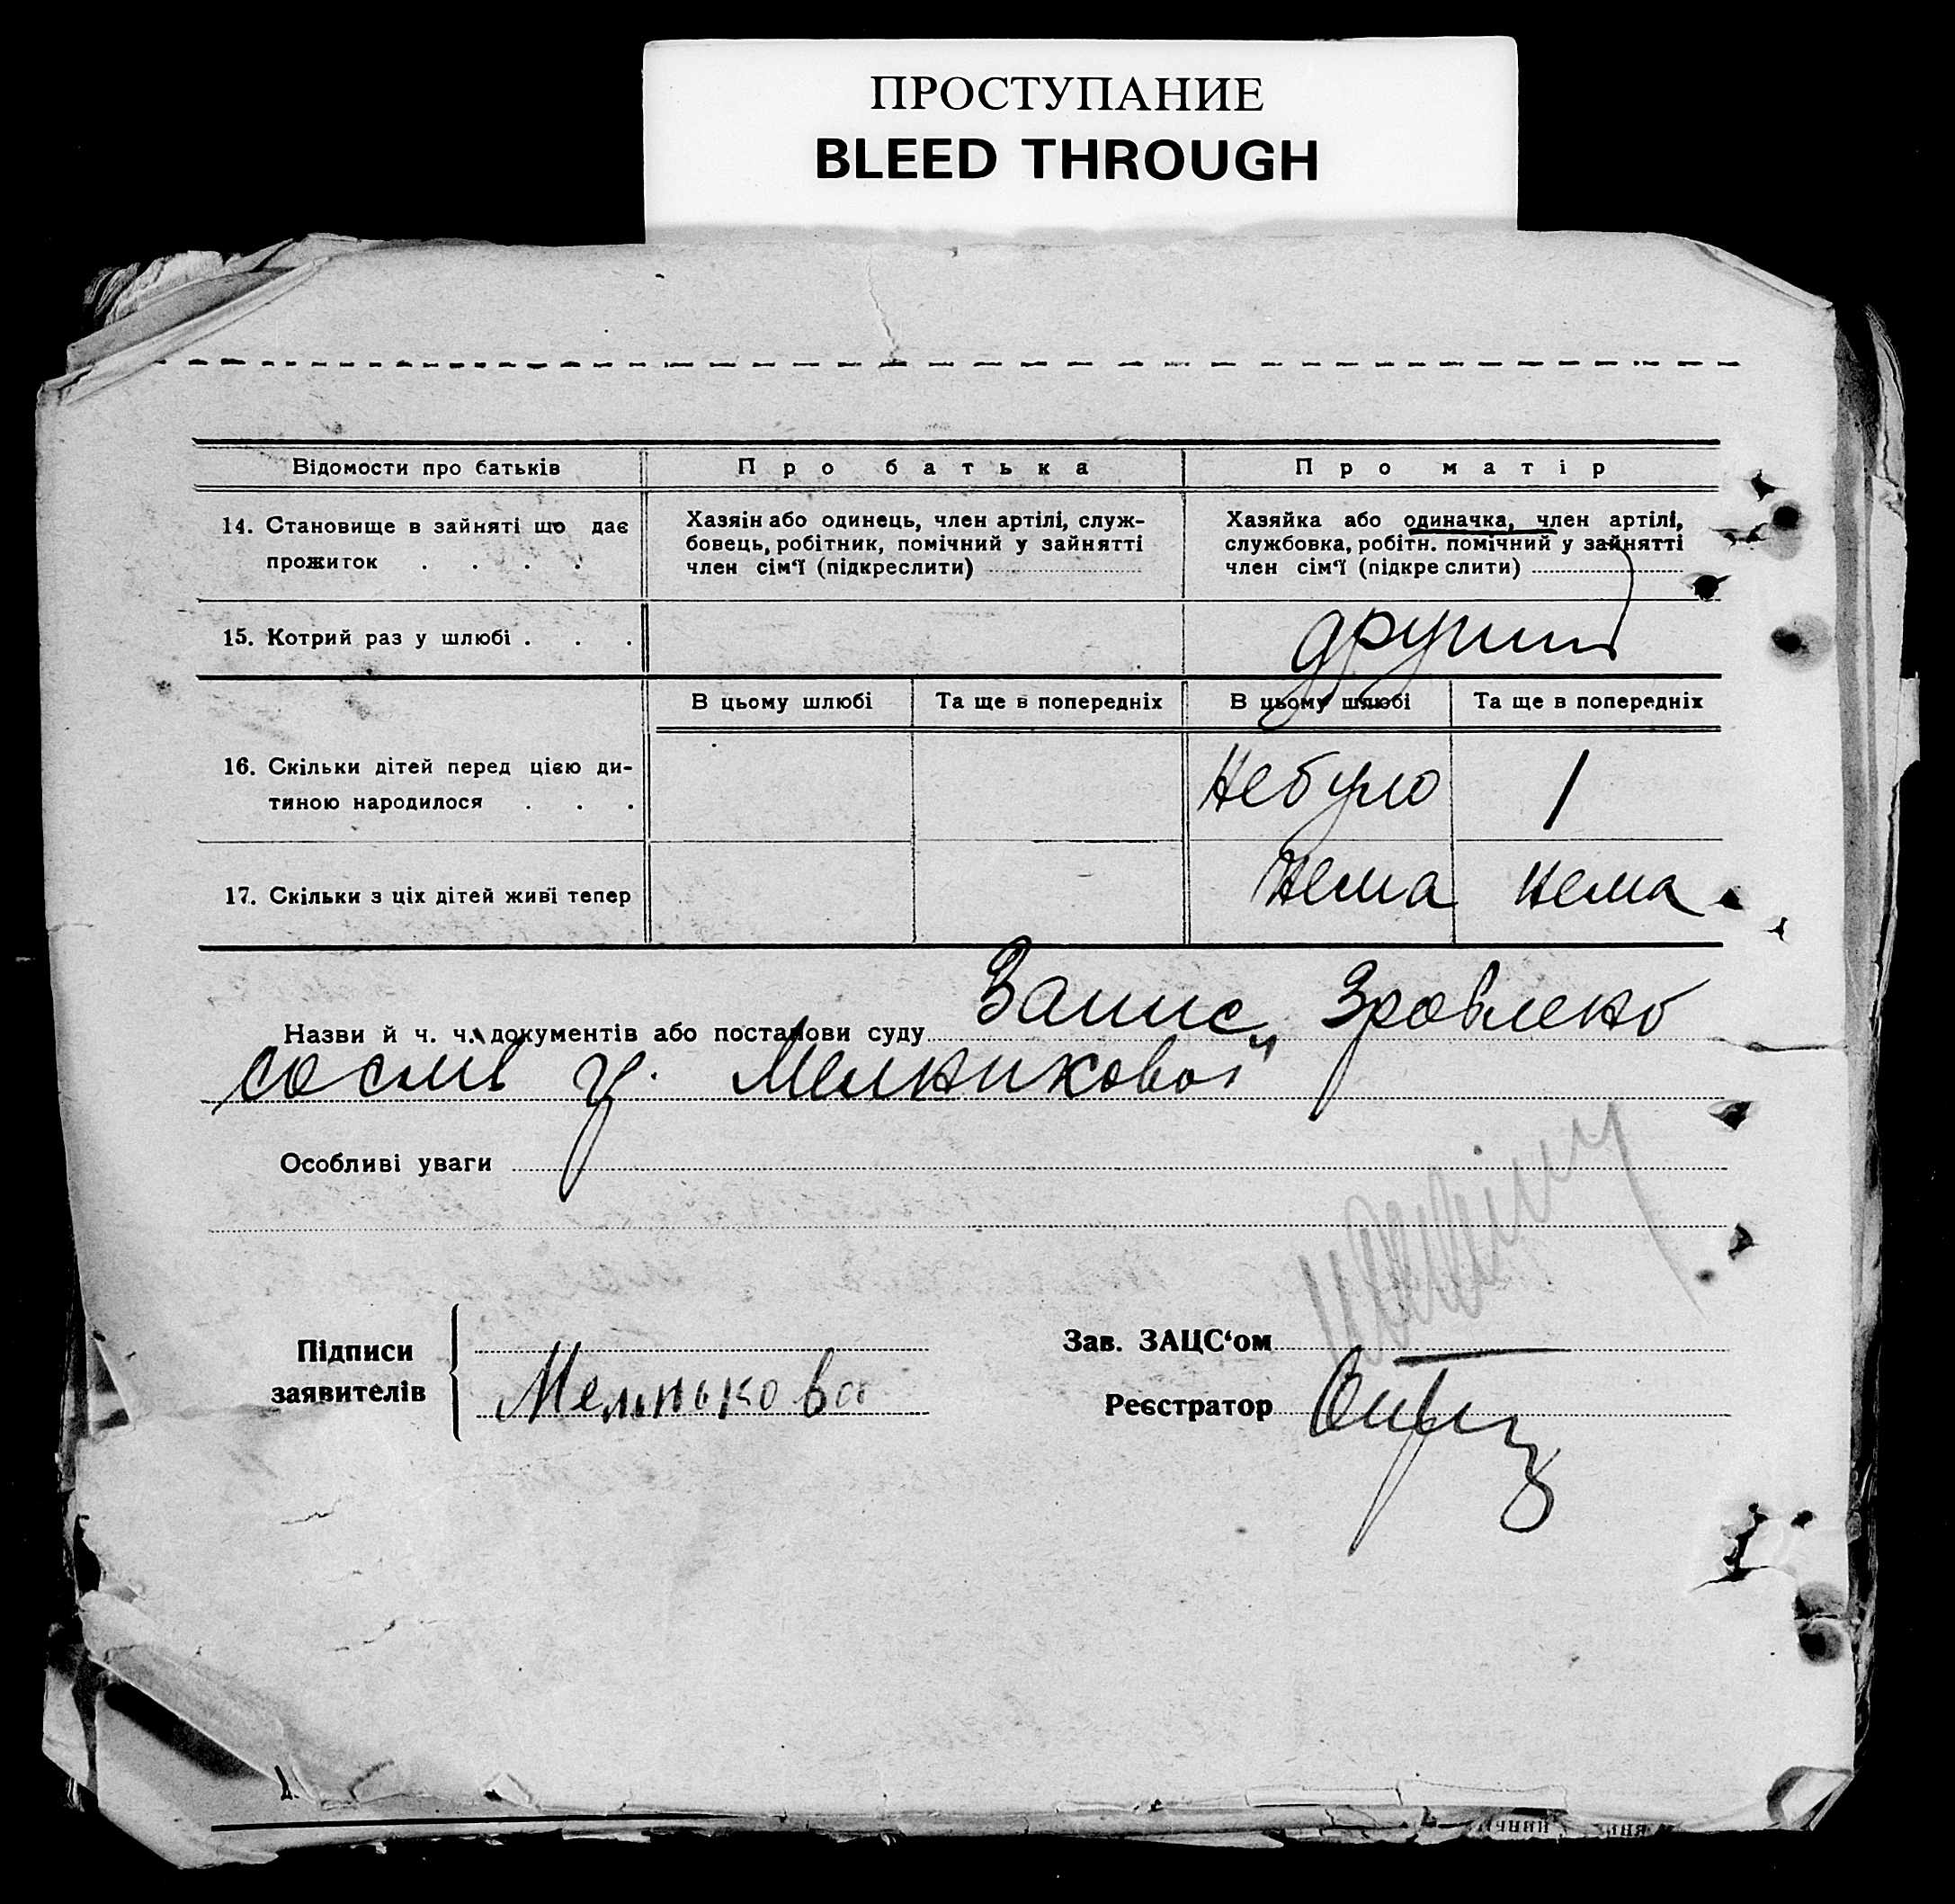 ПРОСТУПАНИЕ
BLEED THROUGH
Відомости про батьків
Про батька
Про матір
14. Становище в зайняті що дає
прожиток . . . .
Хазяїн або одинець, член артілі, служ-
бовець, робітник, помічний у зайнятті
член сім‘ї (підкреслити)
Хазяйка або одиначка, член артілі,
службовка, робітн. помічний у зайнятті
член сім‘ї (підкреслити)
15. Котрий раз у шлюбі . . .
другий
В цьому шлюбі
Та ще в попередніх
В цьому шлюбі
Та ще в попередніх
16. Скільки дітей перед цією ди-
тиною народилося . . .
Небуло
1
17. Скільки з ціх дітей живі тепер
Нема
Нема
Назви й ч. ч. документів або постанови суду Запис, Зроблено
со слів гр. Мелниковоі
Особливі уваги
Підписи
заявителів
Мельнькова
Зав. ЗАЦС‘ом
Реєстратор